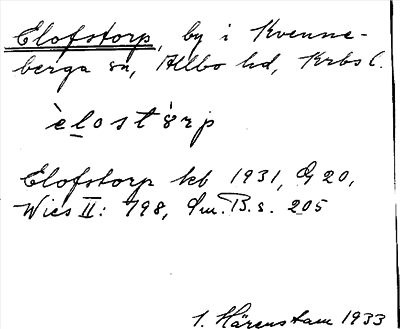 Elofstorp, by i Kvenne-
berga sn, Allbo hd, Krbs l.
èlostòrp
Elofstorp kb 1931, G 20,
Wies II: 798, Sm. B. s. 205
I. Härenstam 1933